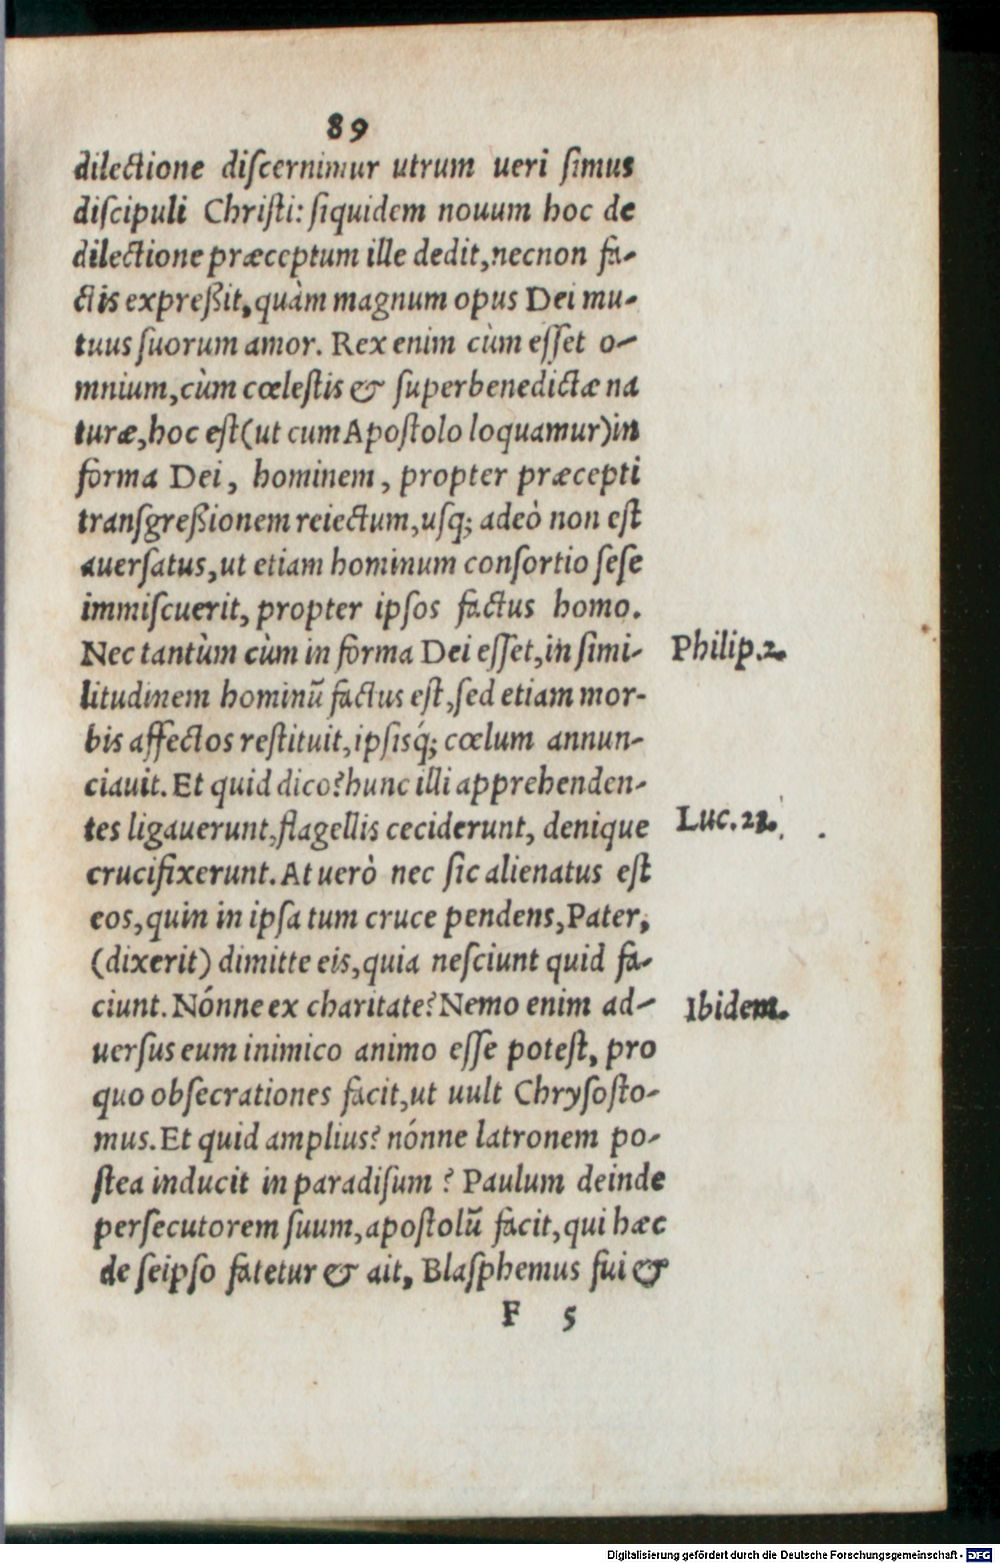 89
dilectione discernimur utrum ueri simus
discipuli Christi: siquidem nouum hoc de
dilectione præceptum ille dedit, necnon fa-
ctis expreßit, quàm magnum opus Dei mu-
tuus suorum amor. Rex enim cùm esset o-
mnium, cùm cœlestis & superbenedictæ na
turæ, hoc est (ut cum Apostolo loquamur) in
forma Dei, hominem, propter præcepti
transgreßionem reiectum, usq; adeò non est
auersatus, ut etiam hominum consortio sese
immiscuerit, propter ipsos factus homo.
Nec tantùm cùm in forma Dei esset, in simi-
Philip. 2.
litudinem hominũ factus est, sed etiam mor-
bis affectos restituit, ipsisq́; cœlum annun-
ciauit. Et quid dico? hunc illi apprehenden-
tes ligauerunt, flagellis ceciderunt, denique
Luc. 23.
crucifixerunt. At uerò nec sic alienatus est
eos, quin in ipsa tum cruce pendens, Pater,
(dixerit) dimitte eis, quia nesciunt quid fa-
ciunt. Nónne ex charitate? Nemo enim ad-
Ibidem.
uersus eum inimico animo esse potest, pro
quo obsecrationes facit, ut uult Chrysosto-
mus. Et quid amplius? nónne latronem po-
stea inducit in paradisum? Paulum deinde
persecutorem suum, apostolũ facit, qui hæc
de seipso fatetur & ait, Blasphemus fui &
F 5
Digitalisierung gefördert durch die Deutsche Forschungsgemeinschaft - DFG